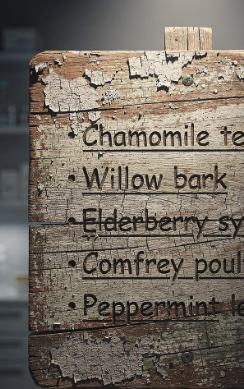 • Chamomile te
• Willow bark
• Elderberry sy
• Comfrey poul
• Peppermint le